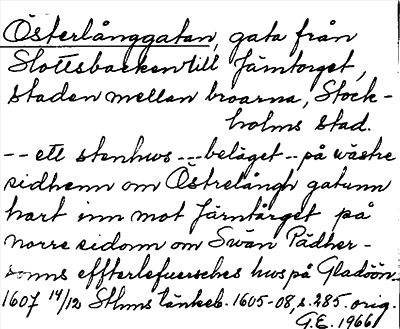 Österlånggatan, gata från
Slottsbacken till Järntorget,
staden mellan broarna, Stock-
holms stad.
-- ett stenhws --- beläget -- på wästre
sidhenn om Östrelångh gatunn
hart inn mot Järntårget på
norre sidonn om Swän Pädher-
sonns effterlefuersches hws på Gladöön -
1607 14/12 Sthms tänkeb. 1605-08, s. 285. orig.
G.E. 1966